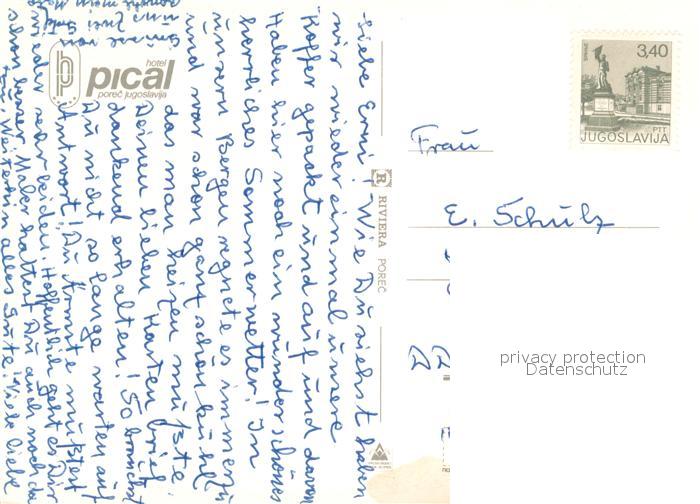 Liebe Erni! Wie Du siehst haben
wir wieder einmal unsere
Koffer gepackt und auf und davon
Haben hier noch ein wunderschönes
herrliches Sommerwetter! In
unsern Bergen regnete es immerzu
und war schon ganz schön kühl
das man heizen mußte
Deinen lieben Kartenbrief
dankend erhalten! So brauchst
Du nicht so lange warten auf
Antwort! Du Ärmste mußtest
wieder sehr leiden. Hoffentlich geht es Dir
schon besser. Maler hattest Du auch noch da
Weiterhin alles Gute. Viele liebe
Grüsse von
uns zwei
hotel
pical
poreč jugoslavija
RIVIERA POREČ
3,40
PTT
JUGOSLAVIJA
Frau
E. Schulz
DD
privacy protection
Datenschutz